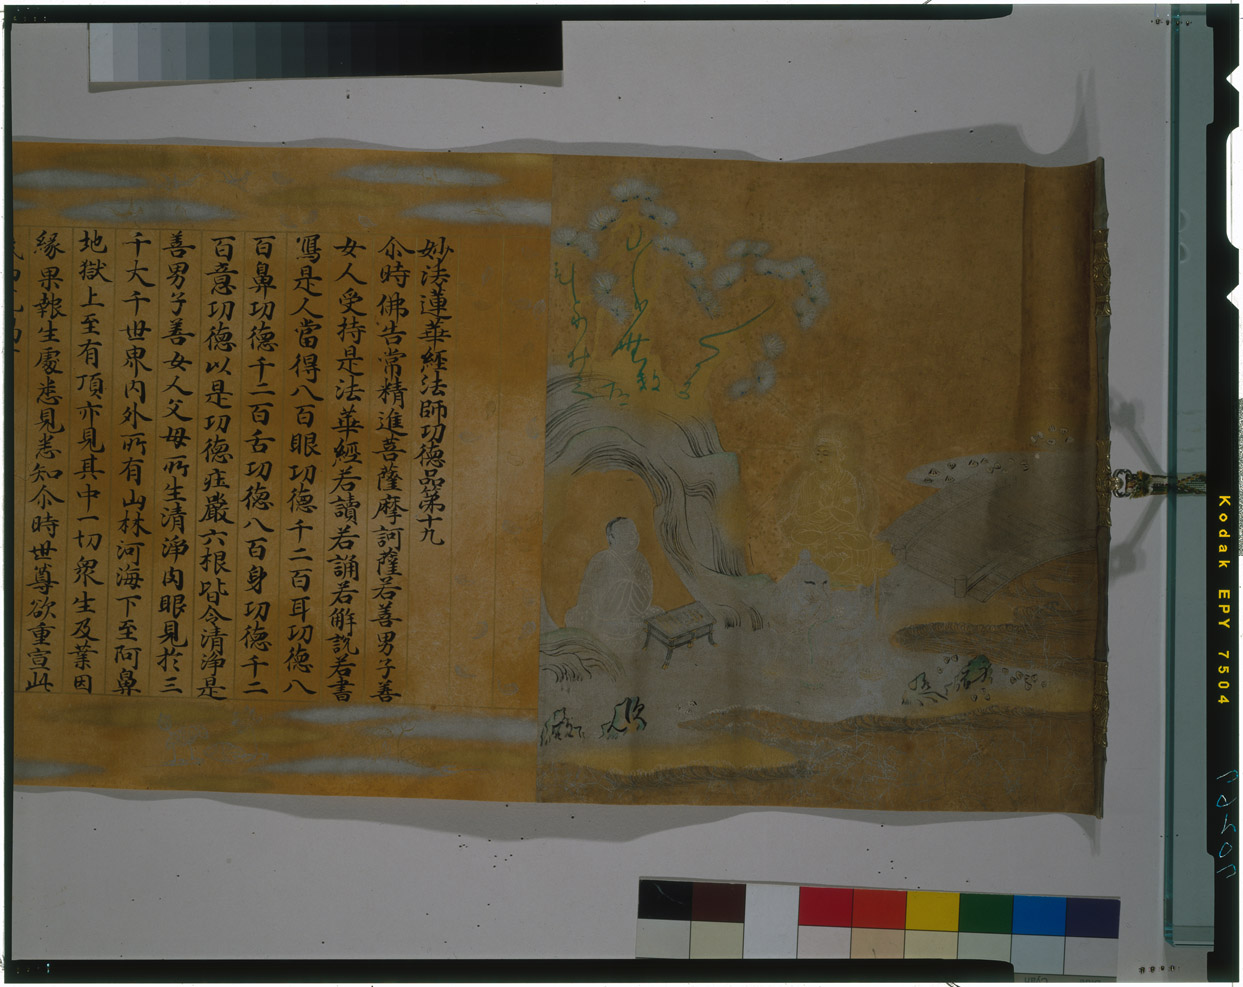 妙法蓮華經法師功德品第十九
尒時佛告常精進菩薩摩訶薩若善男子善
女人受持是法華經若讀若誦若解說若書
寫是人當得八百眼功德千二百耳功德八
百鼻功德千二百舌功德八百身功德千二
百意功德以是功德莊嚴六根皆令清淨是
善男子善女人父母所生清淨肉眼見於三
千大千世界內外所有山林河海下至阿鼻
地獄上至有頂亦見其中一切衆生及業因
緣果報生處悉見悉知尒時世尊欲重宣此
Kodak EPY 7504